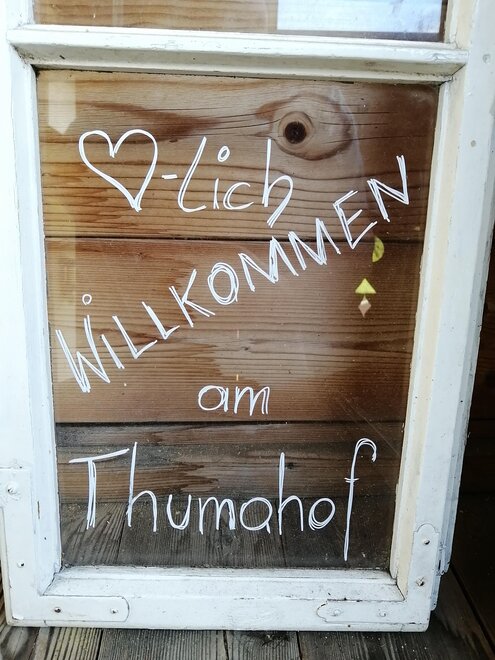 ♡-lich
WILLKOMMEN
am
Thumahof